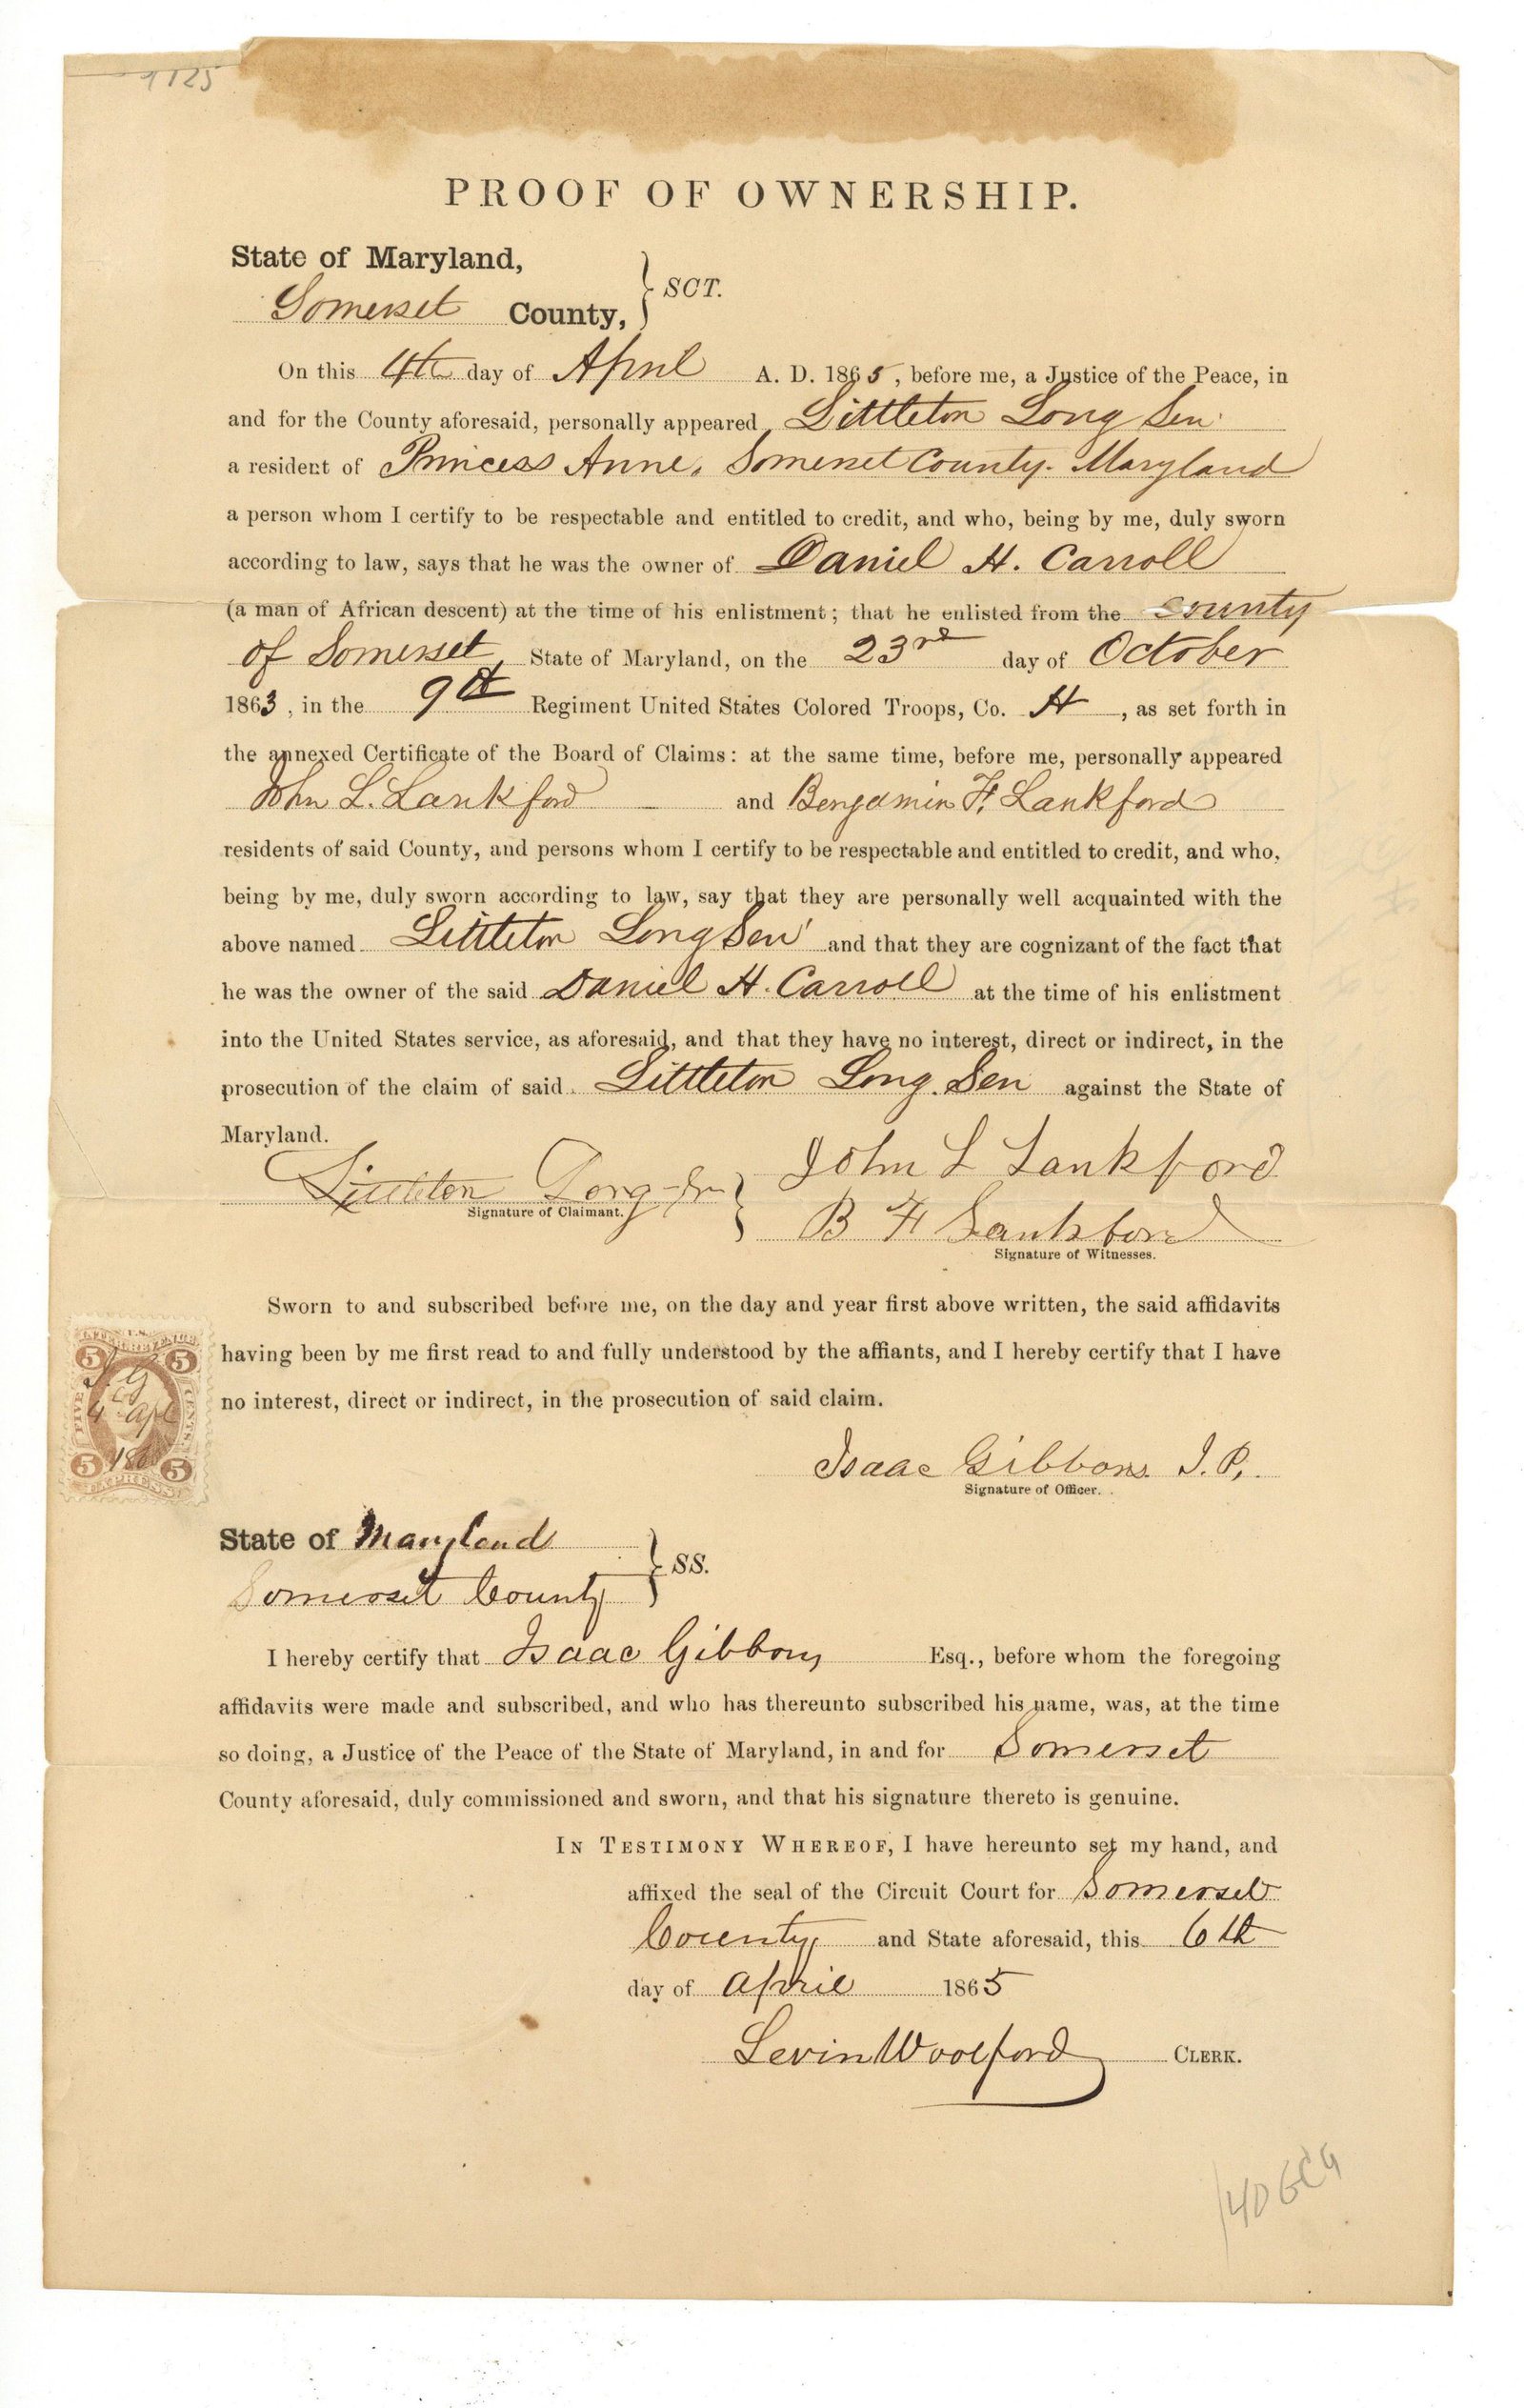 1125
PROOF OF OWNERSHIP.
State of Maryland,
Somerset County, } SCT.
On this 4th day of April A. D. 1865, before me, a Justice of the Peace, in
and for the County aforesaid, personally appeared Littleton Long Sen.
a resident of Princess Anne, Somerset County. Maryland
a person whom I certify to be respectable and entitled to credit, and who, being by me, duly sworn
according to law, says that he was the owner of Daniel H. Carroll
(a man of African descent) at the time of his enlistment; that he enlisted from the County
of Somerset, State of Maryland, on the 23rd day of October
1863, in the 9th Regiment United States Colored Troops, Co. H, as set forth in
the annexed Certificate of the Board of Claims: at the same time, before me, personally appeared
John L. Lankford and Benjamin F. Lankford
residents of said County, and persons whom I certify to be respectable and entitled to credit, and who,
being by me, duly sworn according to law, say that they are personally well acquainted with the
above named Littleton Long Sen and that they are cognizant of the fact that
he was the owner of the said Daniel H. Carroll at the time of his enlistment
into the United States service, as aforesaid, and that they have no interest, direct or indirect, in the
prosecution of the claim of said Littleton Long. Sen against the State of
Maryland.
Littleton Long Sr } John L Lankford
Signature of Claimant.
B F Lankford
Signature of Witnesses.
Sworn to and subscribed before me, on the day and year first above written, the said affidavits
having been by me first read to and fully understood by the affiants, and I hereby certify that I have
no interest, direct or indirect, in the prosecution of said claim.
5 5
FIVE CENTS
4 Apl
5 5
Isaac Gibbons J. P.
Signature of Officer.
State of Maryland
Somerset County } SS.
I hereby certify that Isaac Gibbons Esq., before whom the foregoing
affidavits were made and subscribed, and who has thereunto subscribed his name, was, at the time
so doing, a Justice of the Peace of the State of Maryland, in and for Somerset
County aforesaid, duly commissioned and sworn, and that his signature thereto is genuine.
IN TESTIMONY WHEREOF, I have hereunto set my hand, and
affixed the seal of the Circuit Court for Somerset
County and State aforesaid, this 6th
day of April 1865
Levin Woolford CLERK.